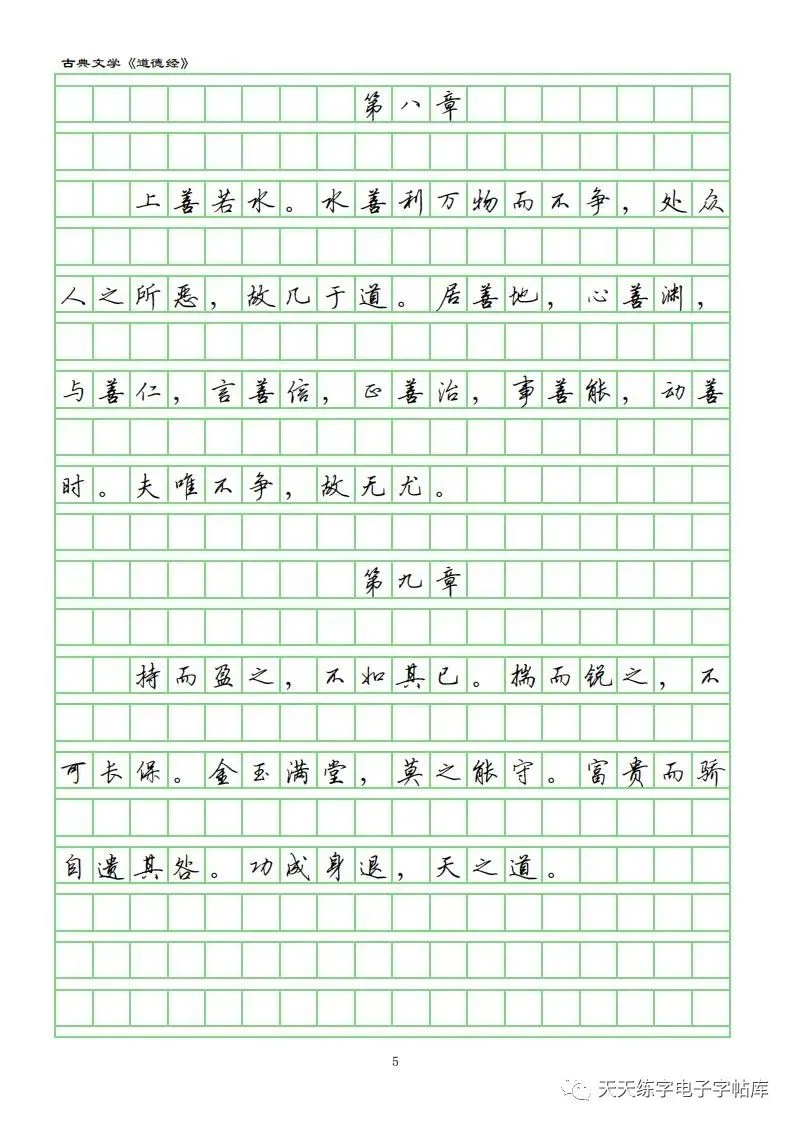 古典文学《道德经》
第八章
上善若水。水善利万物而不争，处众
人之所恶，故几于道。居善地，心善渊，
与善仁，言善信，正善治，事善能，动善
时。夫唯不争，故无尤。
第九章
持而盈之，不如其已。揣而锐之，不
可长保。金玉满堂，莫之能守。富贵而骄
自遗其咎。功成身退，天之道。
5
天天练字电子字帖库